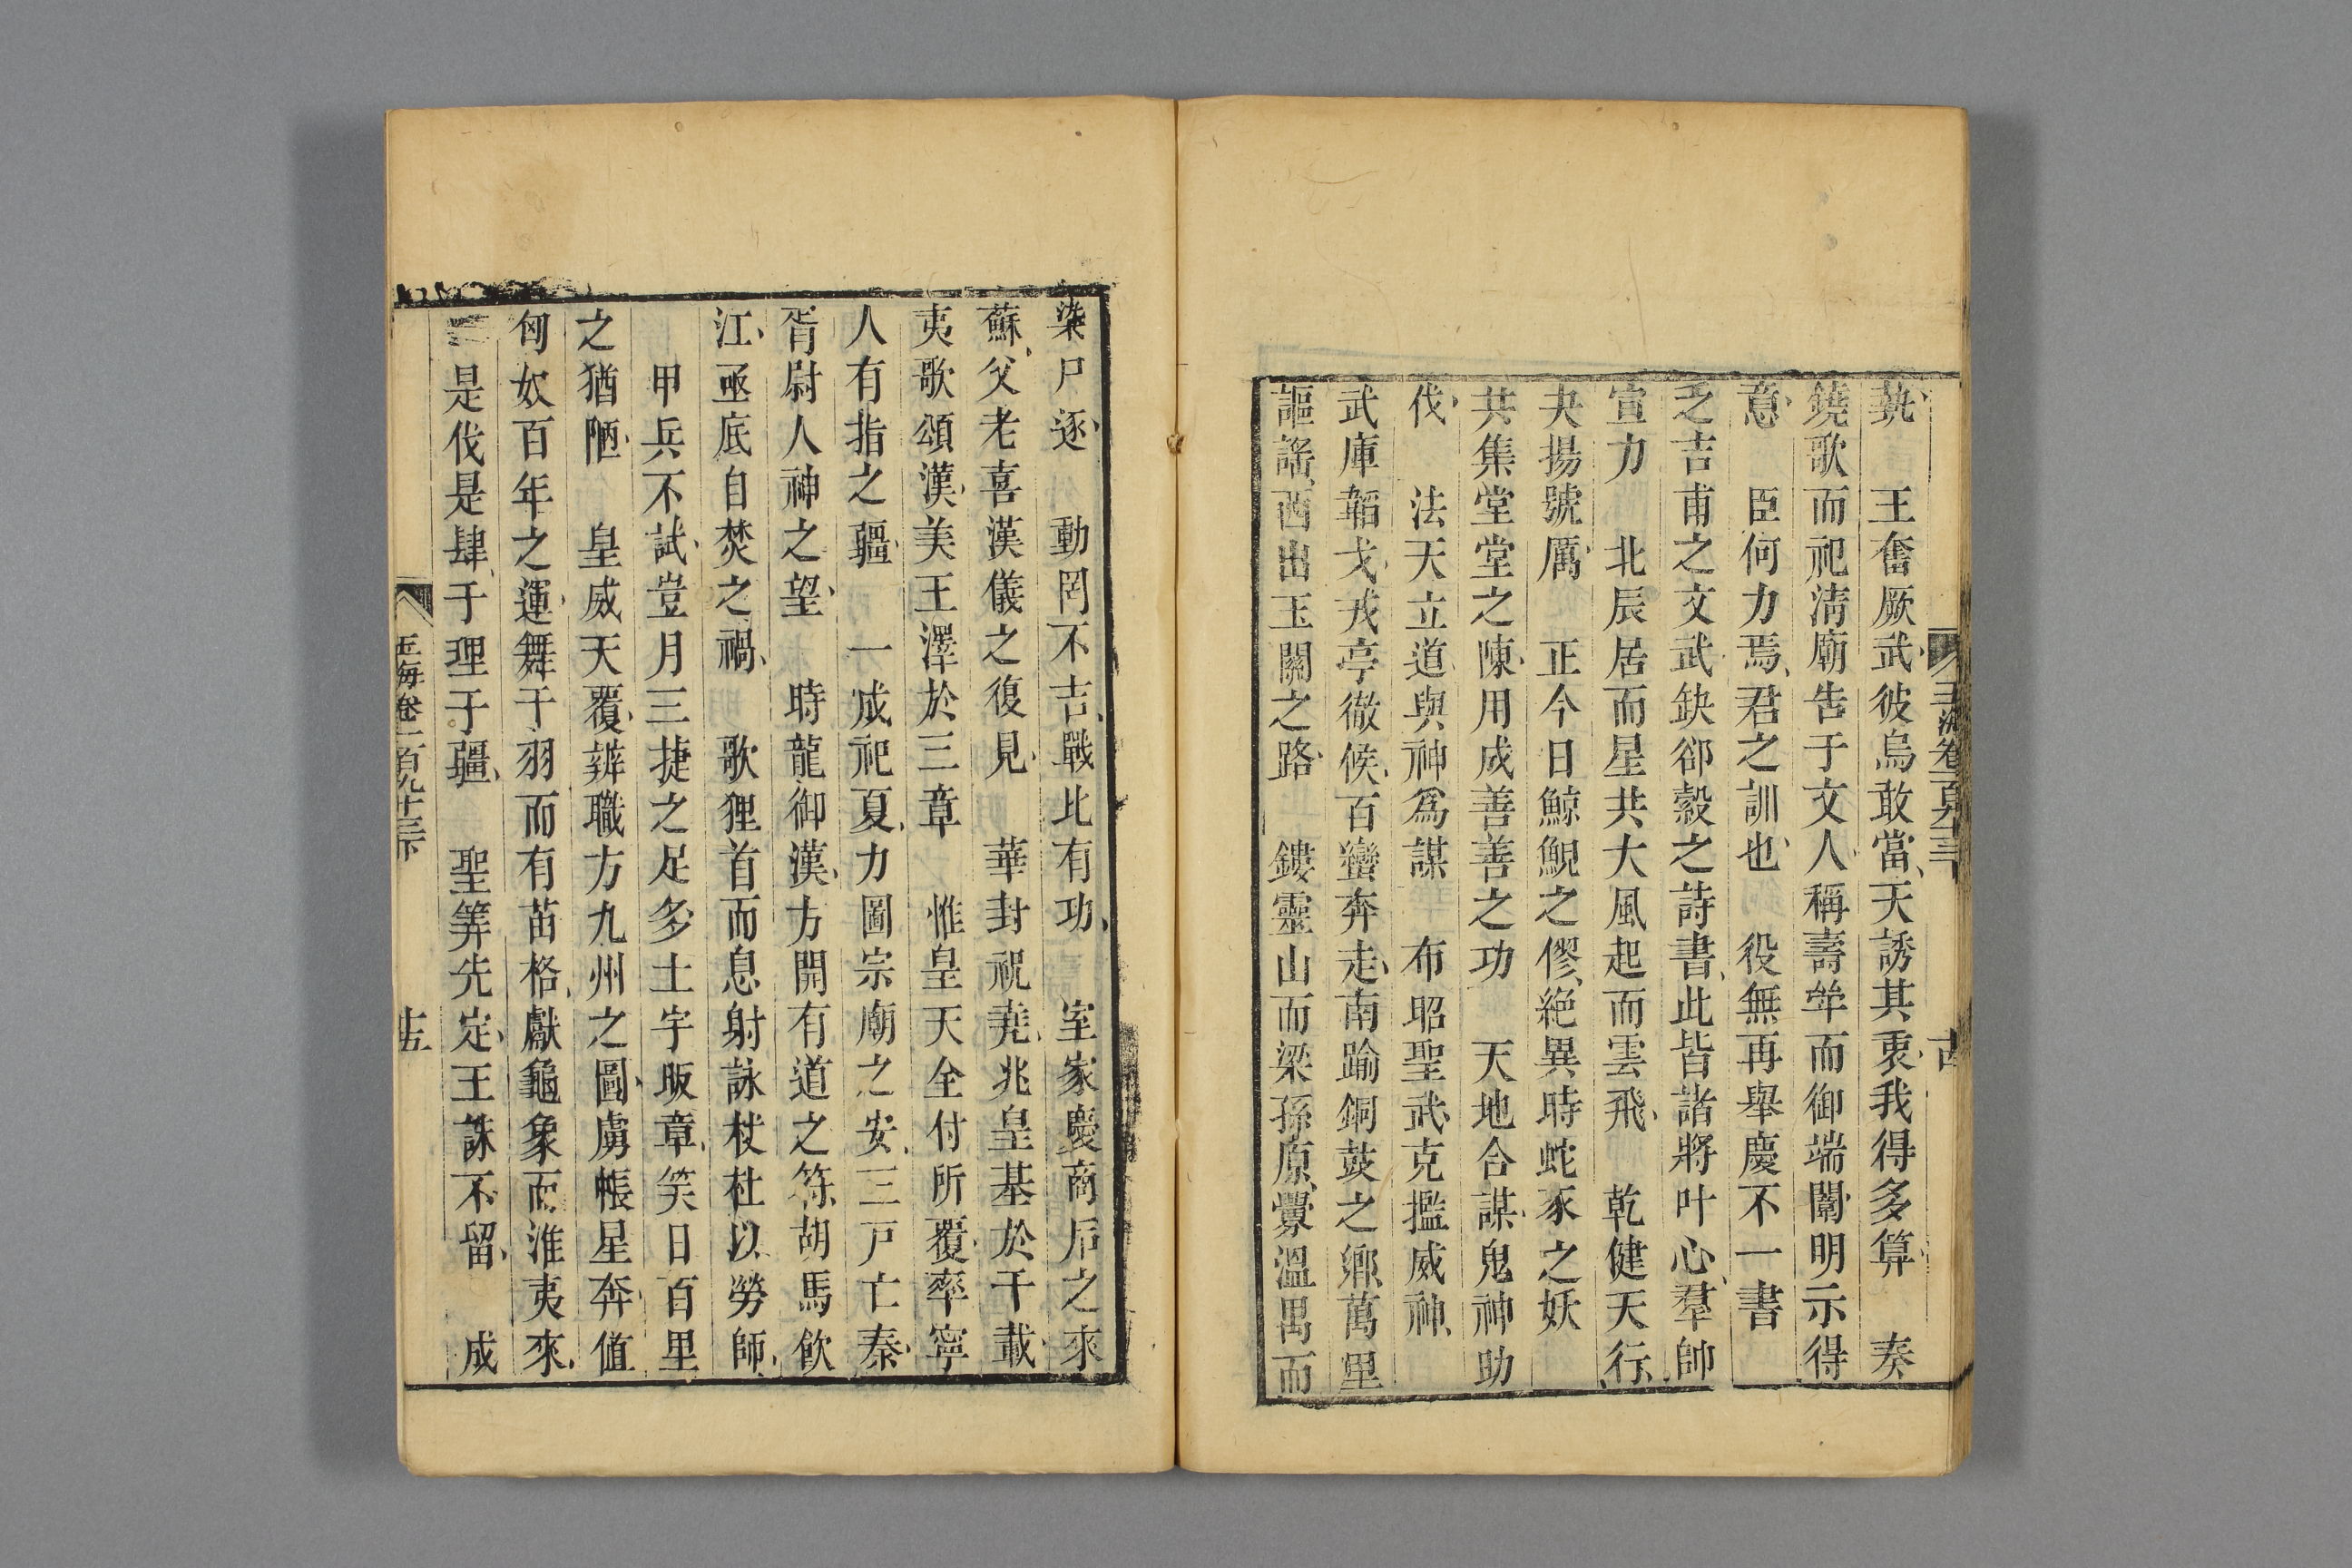 玉海卷一百九十三下 古
埶、王奮厥武、彼烏敢當、天誘其衷、我得多算、奏
鐃歌而祀淸廟、告于文人、稱壽斝而御端闈、明示得
意、臣何力焉、君之訓也、役無再舉、慶不一書
乏吉甫之文武、缺郤縠之詩書、此皆諸將叶心、羣帥
宣力 北辰居而星共、大風起而雲飛、乾健天行、
夬揚號厲、正今日鯨鯢之僇、絶異時蛇豕之妖
共集堂堂之陳、用成善善之功 天地合謀、鬼神助
伐、法天立道、與神爲謀 布昭聖武、克攄威神、
武庫韜戈、戎亭徹候、百蠻奔走、南踰銅鼓之鄕、萬里
謳謠、西出玉關之路、鏤靈山而梁孫原、釁溫禺而
染尸逐、動罔不吉、戰比有功、室家慶商后之來
蘇、父老喜漢儀之復見、華封祝堯、兆皇基於千載、
夷歌頌漢、美王澤於三章 惟皇天全付所覆、率寧
人有指之疆、一成祀夏、力圖宗廟之安、三戸亡秦、
胥尉人神之望、時龍御漢、方開有道之符、胡馬飮
江、亟底自焚之禍、歌狸首而息射、詠杕杜以勞師、
甲兵不試、豈月三捷之足多、土宇昄章、笑日百里
之猶陋、皇威天覆、辨職方九州之圖、虜帳星奔、値
匈奴百年之運、舞干羽而有苗格、獻龜象而淮夷來、
是伐是肆、于理于疆、聖筭先定、王誅不留、成
玉海卷一百九十三下 十五